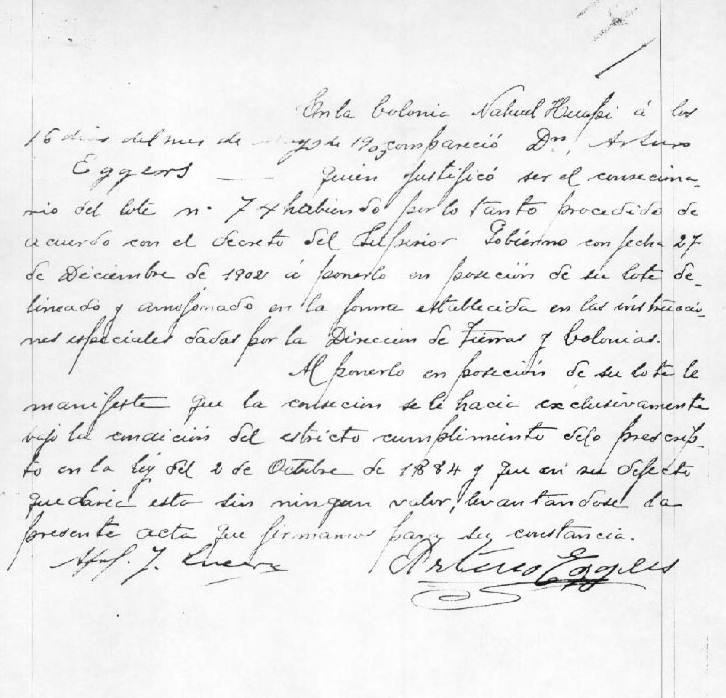 En la Colonia Nahuel Huapi á los
16 dias del mes de de 190 compareció Dn. Arturo
Eggers quien justificó ser el conseciona-
rio del lote n° 74 habiendo por lo tanto procedido de
acuerdo con el decreto del Superior Gobierno con fecha 27
de Diciembre de 1902 á ponerlo en poseción de su lote de-
lineado y amojonado en la forma establecida en las instruccio-
nes especiales dadas por la Direccion de Tierras y Colonias.
Al ponerlo en poseción de su lote le
manifeste que la conseción se le hacia exclusivamente
bajo la condición del estricto cumplimiento delo prescrip-
to en la ley del 2 de Octubre de 1884 y que en su defecto
quedaria esta sin ningun valor, levantandose la
presente acta que firmamos para su constancia.
J. Arturo Eggers